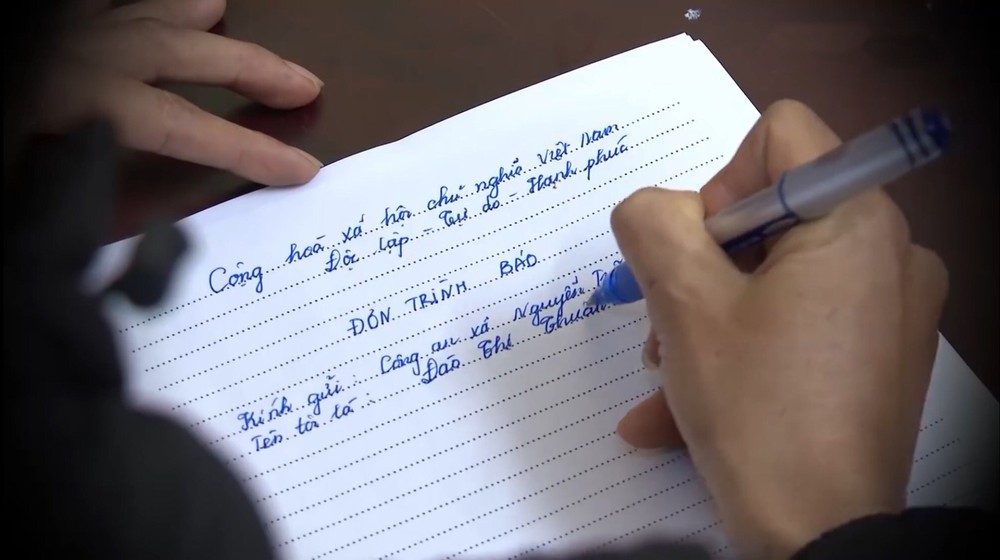 Cộng hoà xã hội chủ nghĩa Việt Nam
Độc lập - Tự do - Hạnh phúc
ĐƠN TRÌNH BÁO
Kính gửi: Công an xã Nguyễn
Tên tôi là: Đào Thị